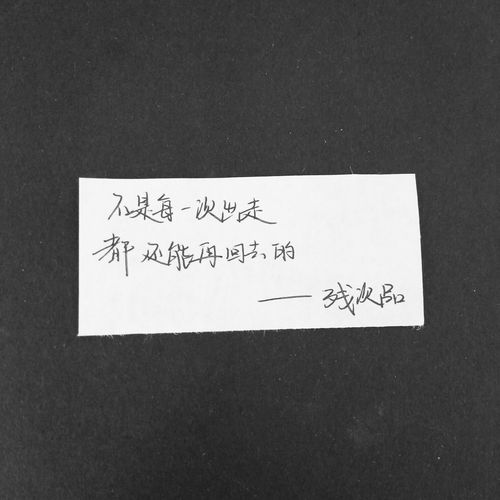 不是每一次出走
都还能再回去的
——残次品